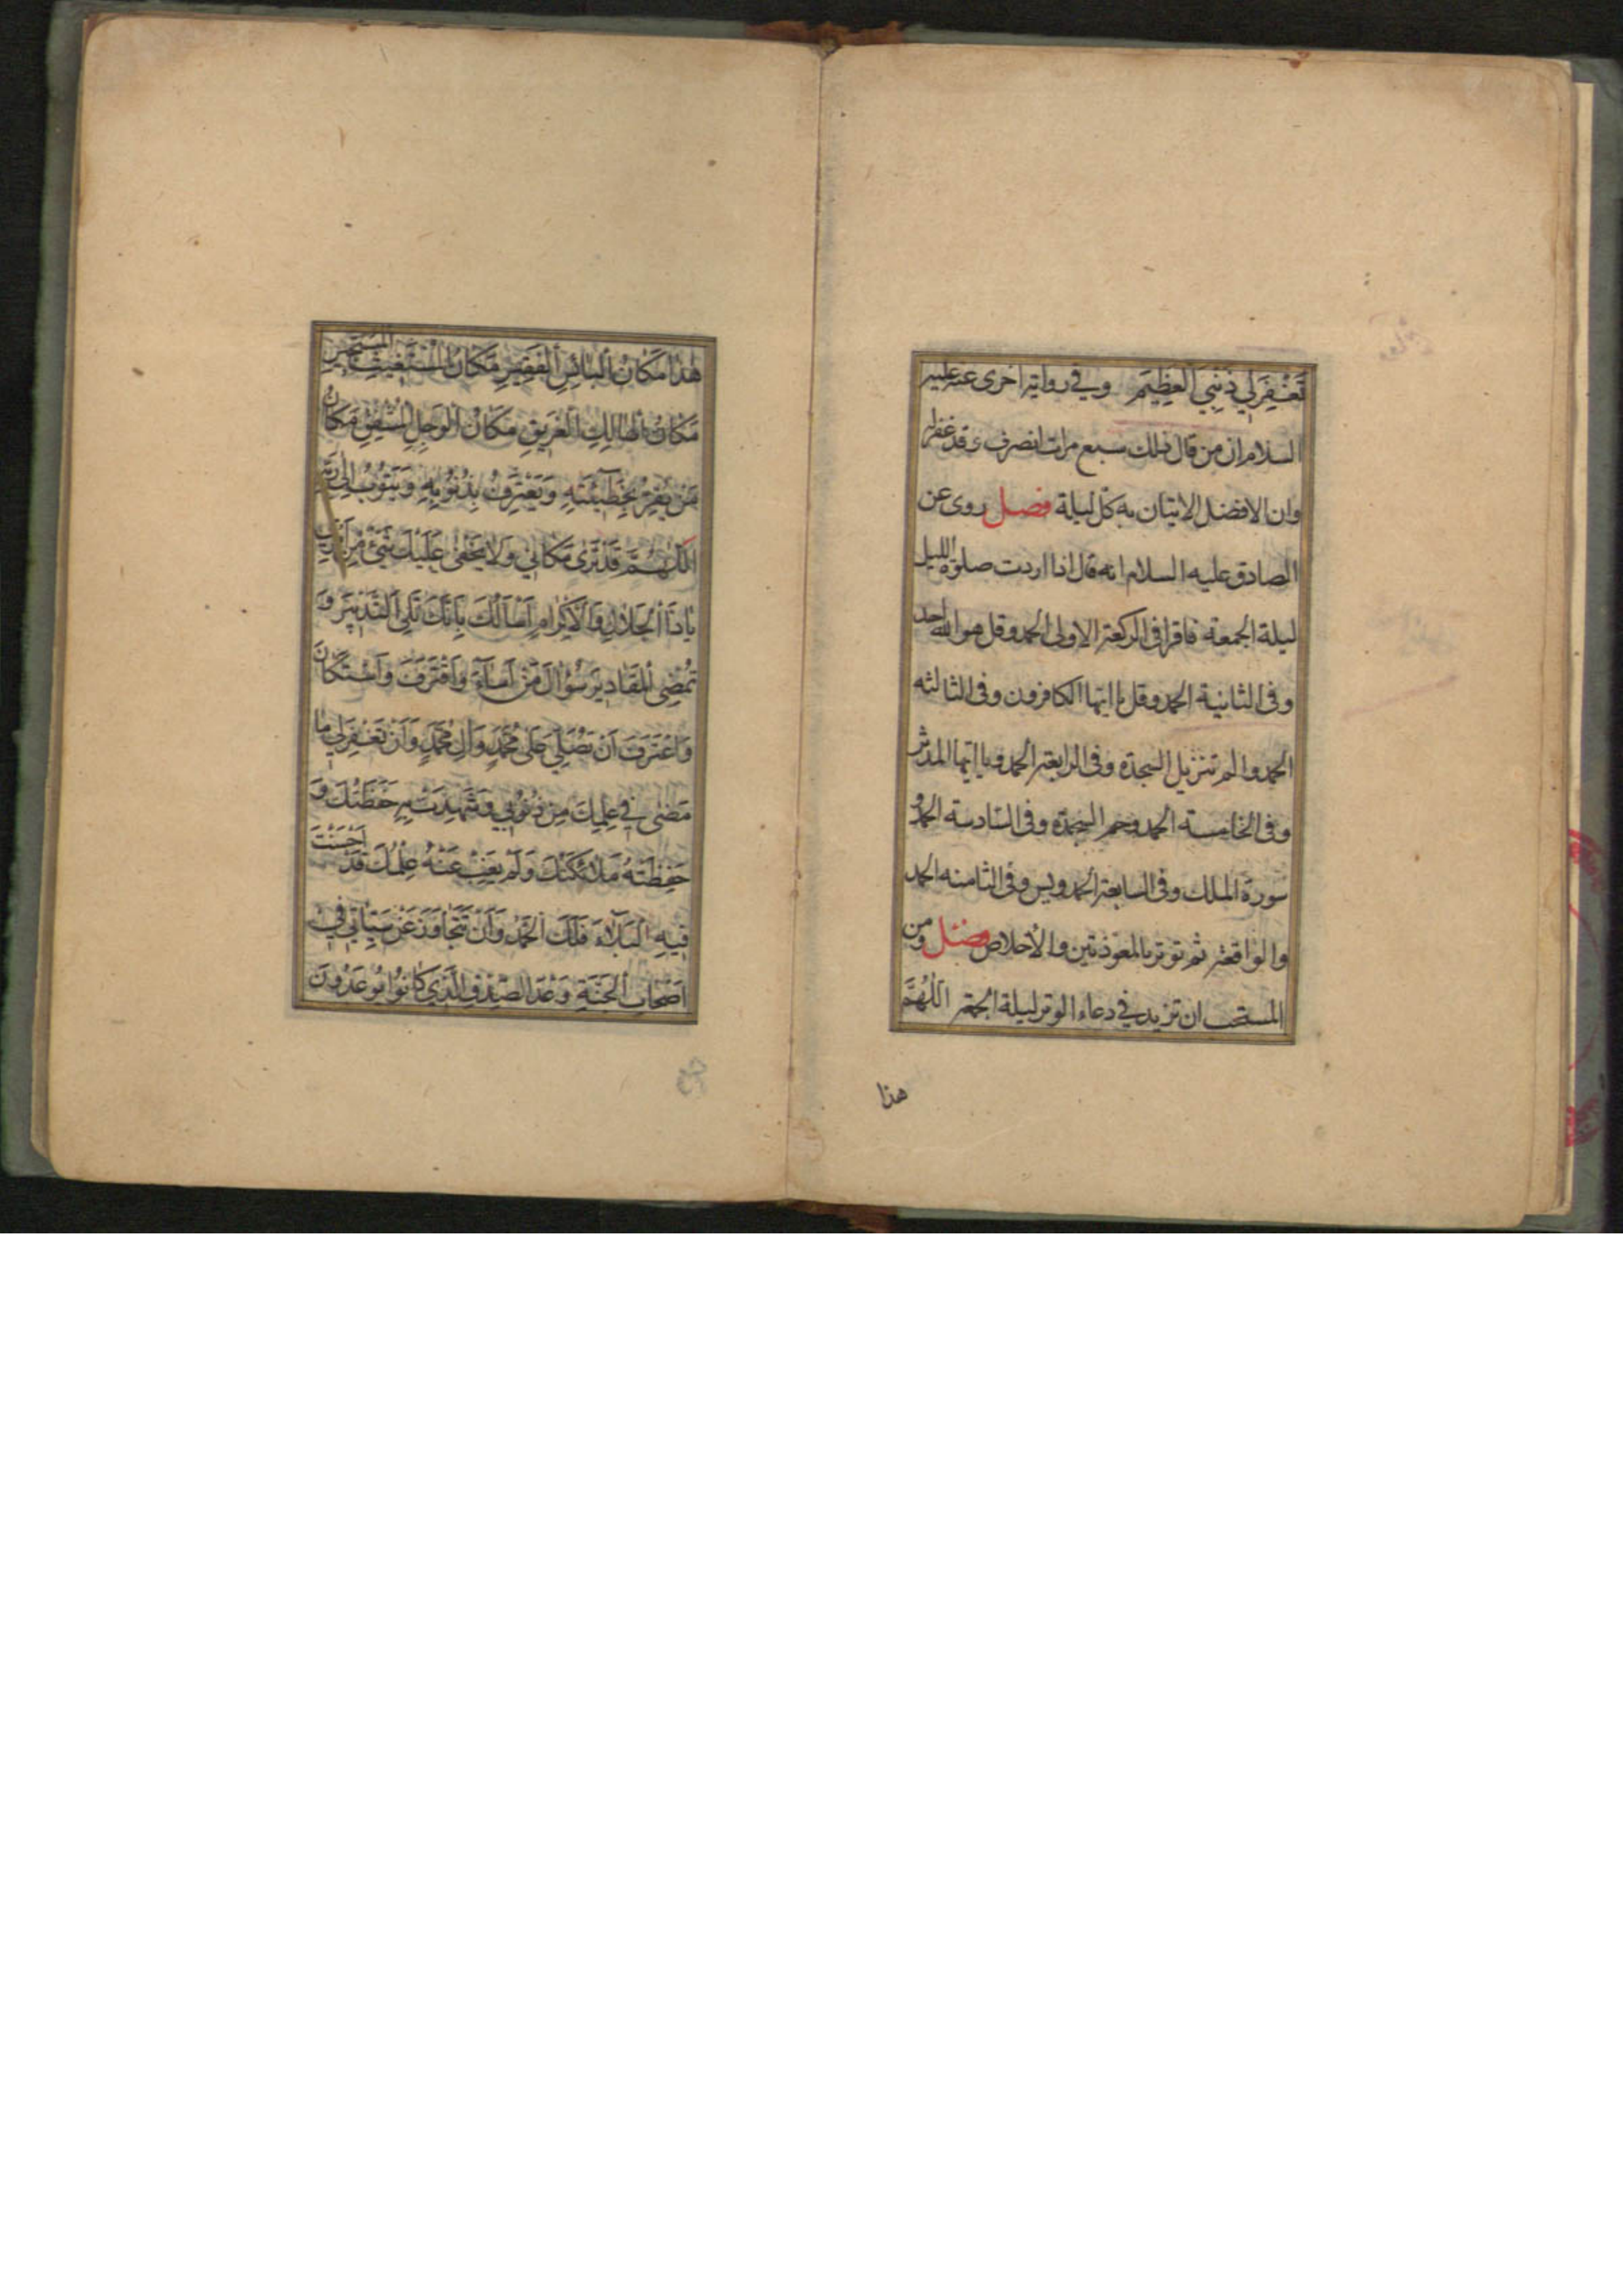 تَغْفِرَ لِي ذَنْبِيَ الْعَظِيمَ وفي رواية اخرى عنه عليه
السلام ان من قال ذلك سبع مرات انصرف وقد غفر له
وان الافضل الاتيان به كل ليلة فصل روى عن
الصادق عليه السلام انه قال اذا اردت صلوة الليل
ليلة الجمعة فاقرا فى الركعة الاولى الحمد وقل هو الله احد
وفى الثانية الحمد وقل يا ايها الكافرون وفى الثالثه
الحمد والم تنزيل السجدة وفى الرابعة الحمد ويا ايها المدثر
وفى الخامسة الحمد وحم السجدة وفى السادسة الحمد و
سورة الملك وفى السابعة الحمد ويس وفى الثامنه الحمد
والواقعة ثم توتر بالمعوذتين والاخلاص فصل ومن
المستحب ان تزيد في دعاء الوتر ليلة الجمعة اَللّٰهُمَّ
هذا
هٰذَا مَكَانُ الْبَائِسِ الْفَقِيرِ مَكَانُ الْمُسْتَغِيثِ الْمُسْتَجِيرِ
مَكَانُ الْهَالِكِ الْغَرِيقِ مَكَانُ الْوَجِلِ الْمُشْفِقِ مَكَانُ
مَنْ يُقِرُّ بِخَطِيئَتِهِ وَيَعْتَرِفُ بِذُنُوبِهِ وَيَتُوبُ اِلٰى رَبِّهِ
اَللّٰهُمَّ قَدْ تَرٰى مَكَانِي وَلَا يَخْفٰى عَلَيْكَ شَيْءٌ مِنْ اَمْرِي
يَا ذَا الْجَلَالِ وَالْاِكْرَامِ اَسْاَلُكَ بِاَنَّكَ تَلِي التَّدْبِيرَ وَ
تُمْضِي الْمَقَادِيرَ سُؤَالَ مَنْ اَسَاءَ وَاقْتَرَفَ وَاسْتَكَانَ
وَاعْتَرَفَ اَنْ تُصَلِّيَ عَلٰى مُحَمَّدٍ وَآلِ مُحَمَّدٍ وَاَنْ تَغْفِرَ لِي مَا
مَضٰى فِي عِلْمِكَ مِنْ ذُنُوبِي وَشَهِدَتْ بِهِ حَفَظَتُكَ وَ
حَفِظَتْهُ مَلَائِكَتُكَ وَلَمْ يَغِبْ عَنْهُ عِلْمُكَ قَدْ اَحْسَنْتَ
فِيهِ الْبَلَاءَ فَلَكَ الْحَمْدُ وَاَنْ تَتَجَاوَزَ عَنْ سَيِّئَاتِي فِي
اَصْحَابِ الْجَنَّةِ وَعْدَ الصِّدْقِ الَّذِي كَانُوا يُوعَدُونَ